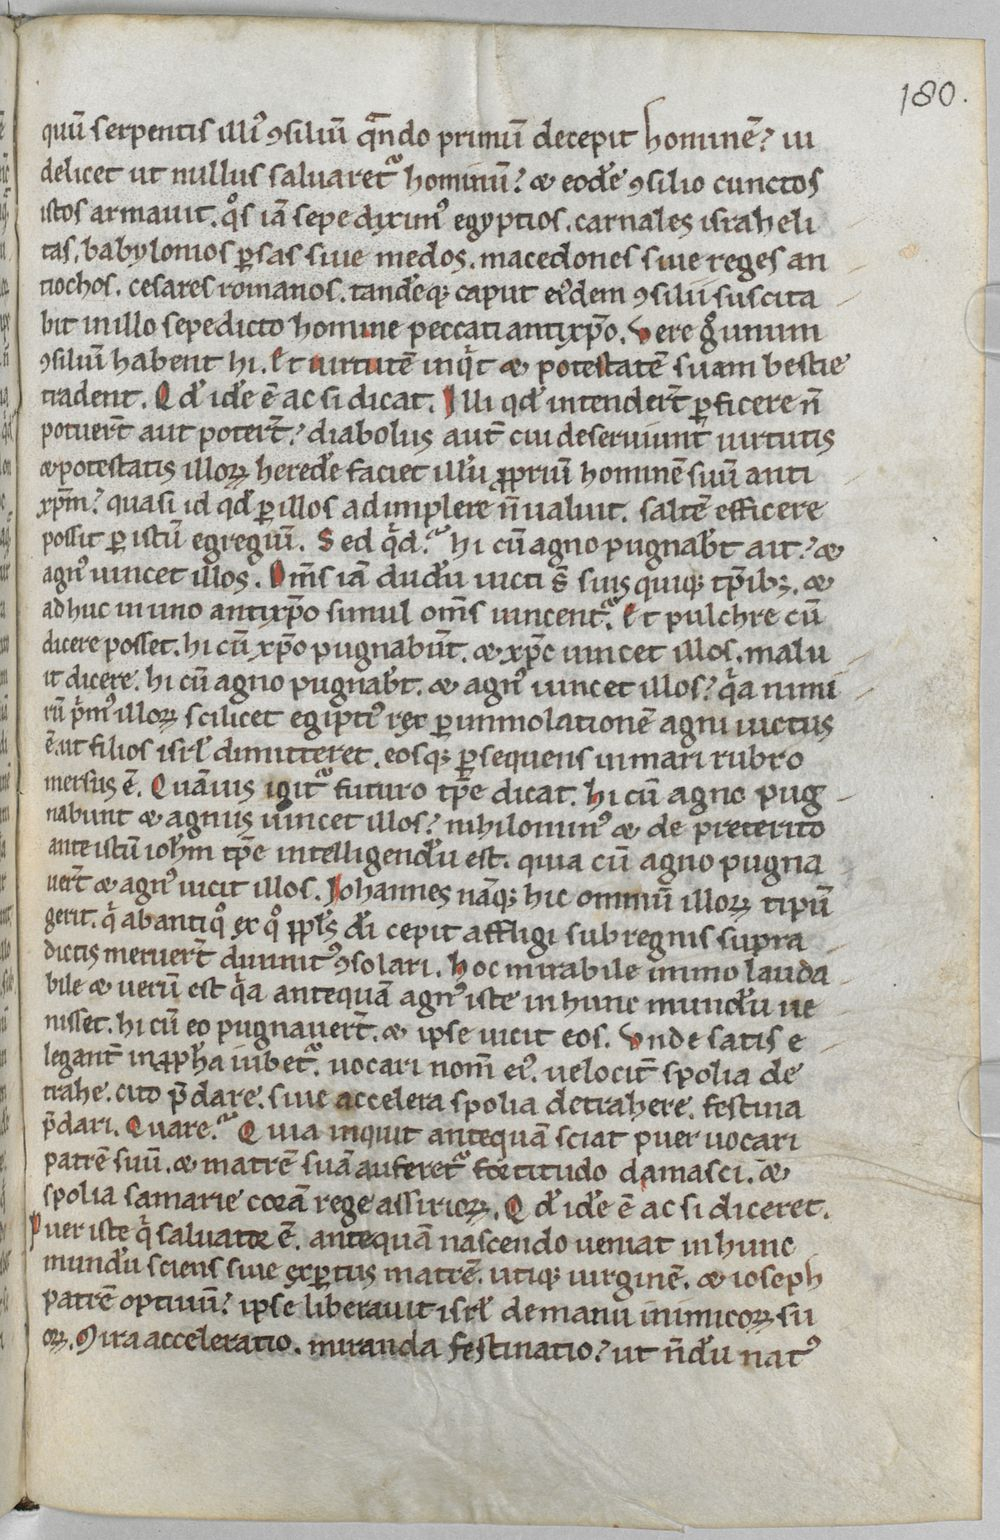 180.
quū serpentis illiꝰ ꝯsiliū qn̄do primū decepit hominē? ui
delicet ut nullus saluaret᷑ hominū? ⁊ eodē ꝯsilio cunctos
istos armauit. qͦs iā sepe diximꝰ egyptios. carnales israheli
tas. babylonios ꝑsas siue medos. macedones siue reges an
tiochos. cesares romanos. tandēqꝫ caput eiꝰdem ꝯsilii suscita
bit in illo sepedicto homine peccati antixp̄o. Vere gͦ unum
ꝯsiliū habent hi. Et uirtutē inqͥt ⁊ potestatē suam bestie
tradent. Qd̄ idē ē ac si dicat. Illi qd̄ intendert̄ ꝑficere n̄
potuert̄ aut potert̄? diabolus aut̄ cui deseruiunt uirtutis
⁊ potestatis illoꝝ heredē faciet illū ꝓprium hominē suū anti
xp̄m? quasi id qd̄ ꝑ illos adimplere n̄ ualuit. saltē efficere
possit ꝑ istū egregiū. Sed qͥd? hi cū agno pugnabt̄ ait? ⁊
agnꝰ uincet illos. Om̄s iā dudū uicti s̄t suis quiqꝫ tp̄ibꝫ. ⁊
adhuc in uno antixp̄o simul om̄s uincent᷑. Et pulchre cū
dicere posset. hi cū xp̄o pugnabūt. ⁊ xp̄c uincet illos. malu
it dicere. hi cū agno pugnabt̄. ⁊ agnꝰ uincet illos? qͥa nimi
rū pͥmꝰ illoꝝ scilicet egiptiꝰ rex ꝑ immolationē agni uictus
ē ut filios isrl̄ dimitteret. eosqꝫ ꝑsequens in mari rubro
mersus ē. Quāuis igit᷑ futuro tp̄e dicat. hi cū agno pug
nabunt ⁊ agnus uincet illos? nihilominꝰ ⁊ de preterito
ante istū ioh̄m tp̄e intelligendū est. quia cū agno pugna
uert̄ ⁊ agnꝰ uicit illos. Iohannes nāqꝫ hic omniū illoꝝ tipū
gerit. qͥ ab antiqͦ ex qͦ ppl̄s dī cepit affligi sub regnis supra
dictis meruert̄ diuinitꝰ ꝯsolari. Hoc mirabile immo lauda
bile ⁊ uerū est qͥa antequā agnꝰ iste in hunc mundū ue
nisset. hi cū eo pugnauert̄. ⁊ ipse uicit eos. Vnde satis e
legant̄ in ꝓph̄a iubet᷑ uocari nom̄ eiꝰ. uelocit̄ spolia de
trahe. cito p̄dare. siue accelera spolia detrahere. festina
p̄dari. Quare? Quia inquit antequā sciat puer uocari
patrē suū. ⁊ matrē suā auferet᷑ fortitudo damasci. ⁊
spolia samarie corā rege assirioꝝ. Qd̄ idē ē ac si diceret.
Puer iste qͥ saluator ē. antequā nascendo ueniat in hunc
mundū sciens siue exꝑtus matrē. utiqꝫ uirginē. ⁊ ioseph
patrē optiuū? ipse liberauit isrl̄ de manu inimicoꝝ su
oꝝ. Mira acceleratio. miranda festinatio? ut n̄dū natꝰ